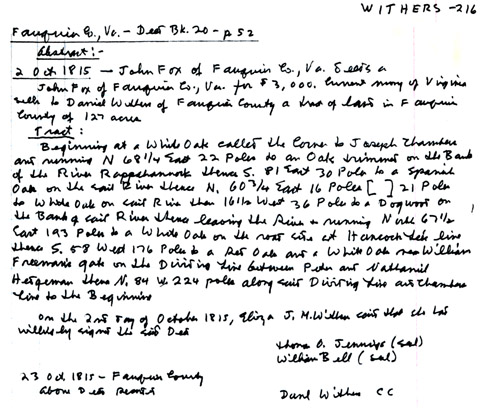 WITHERS -216
Fauquier Co., Va. - Deed Bk. 20 - p 52
Abstract:-
2 Oct 1815 - John Fox of Fauquier Co., Va.
John Fox of Fauquier Co., Va. for $3,000. Current money of Virginia
sells to Daniel Withers of Fauquier County a tract of land in Fauquier
County of 127 acres
Tract:
Beginning at a White Oak called the Corner to Joseph Chambers
and running N 68 1/4 East 22 Poles to an Oak on the Bank
of the River Rappahannock thence S. 81 East 30 Poles to a Spanish
Oak on the said River thence N. 60 East 16 Poles [ ] 21 Poles
to White Oak on said River then 16 1/2 West 36 Poles to a Dogwood on
the Bank of said River thence leaving the River & running North 67 1/2
East 193 Poles to a White Oak on the at Hancock Lee's line
thence S. 58 West 176 Poles to a Red Oak and a White Oak near William
Freeman's gate on the Dividing Line between Peter and Nathaniel
Hedgeman thence N. 84 W 224 poles along said Dividing Line and Chambers
line to the Beginning
On the 2nd day of October 1815, Eliza J. M. Withers said that she has
willingly signed the said Deed
Thom. O. Jennings (seal)
William Bell (seal)
23 Oct 1815 - Fauquier County
Above Deed
Danl Withers CC